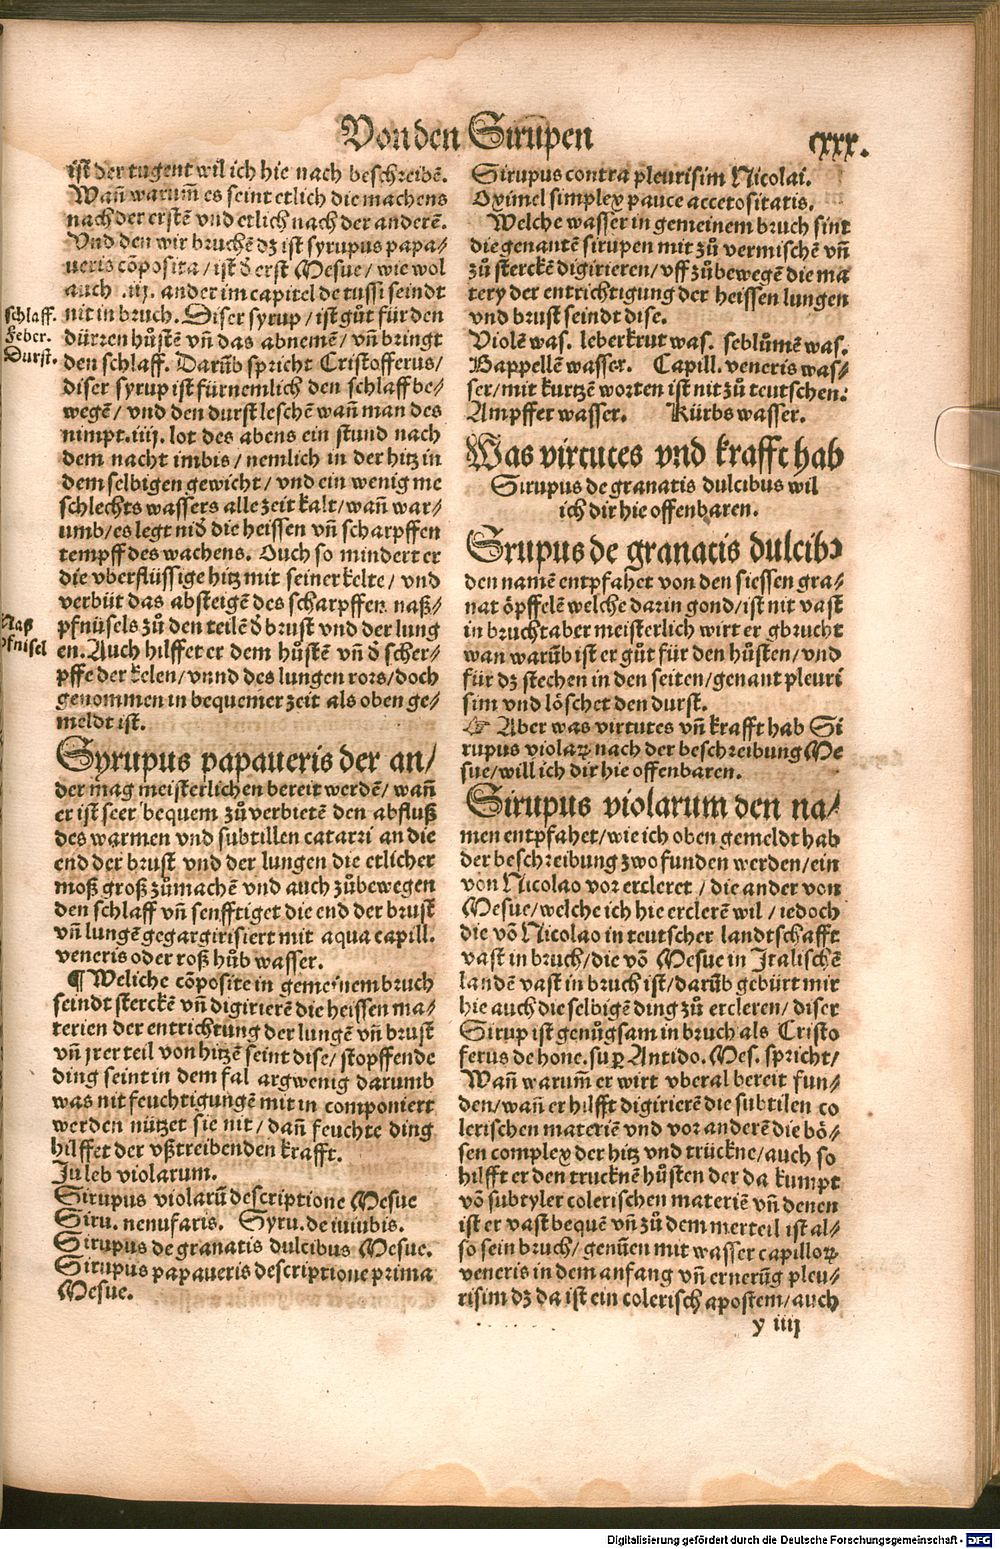 Von den Sirupen
cxxx.
ist der tugent wil ich hie nach beschreibē.
Wañ warum̄ es seint etlich die machens
nach der erstē vnd etlich nach der anderē.
Vnd den wir bruchē dz ist syrupus papa⸗
ueris cōposita / ist d̄ erst Mesue / wie wol
auch .iij. ander im capitel de tussi seindt
nit in bruch. Diser syrup / ist gůt für den
dürren hůstē vñ das abnemē / vñ bringt
den schlaff. Darūb spricht Cristofferus /
diser syrup ist fürnemlich den schlaff be⸗
wegē / vnd den durst leschē wañ man des
nimpt .iiij. lot des abens ein stund nach
dem nacht imbis / nemlich in der hitz in
dem selbigen gewicht / vnd ein wenig me
schlechts wassers alle zeit kalt / wañ war⸗
umb / es legt nid̄ die heissen vñ scharpffen
tempff des wachens. Ouch so mindert er
die vberflüssige hitz mit seiner kelte / vnd
verbüt das absteigē des scharpffen naß⸗
pfnüsels zů den teilē d̄ brust vnd der lung
en. Auch hilffet er dem hůstē vñ d̄ scher⸗
pffe der kelen / vnnd des lungen rors / doch
genommen in bequemer zeit als oben ge⸗
meldt ist.
schlaff.
Feber.
Durst.
Naß
pfnisel
Syrupus papaueris der an⸗
der mag meisterlichen bereit werdē / wañ
er ist seer bequem zů verbietē den abfluß
des warmen vnd subtillen catarri an die
end der brust vnd der lungen die etlicher
moß groß zůmachē vnd auch zůbewegen
den schlaff vñ senfftiget die end der brust
vñ lungē gegargirisiert mit aqua capill.
veneris oder roß hůb wasser.
¶ Weliche cōposite in gemeinem bruch
seindt sterckē vñ digirierē die heissen ma⸗
terien der entrichtung der lungē vñ brust
vñ jrer teil von hitzē seint dise / stopffende
ding seint in dem fal argwenig darumb
was nit feuchtigungē mit in componiert
werden nützet sie nit / dañ feuchte ding
hilffet der vßtreibenden krafft.
Juleb violarum.
Sirupus violarū descriptione Mesue
Siru. nenufaris. Syru. de iuiubis.
Sirupus de granatis dulcibus Mesue.
Sirupus papaueris descriptione prima
Mesue.
Sirupus contra pleurisim Nicolai.
Oximel simplex pauce accetositatis.
Welche wasser in gemeinem bruch sint
die genantē sirupen mit zů vermischē vñ
zů sterckē digirieren / vff zůbewegē die ma
tery der entrichtigung der heissen lungen
vnd brust seindt dise.
Violē was. leberkrut was. seblůmē was.
Bappellē wasser. Capill. veneris was⸗
ser / mit kurtzē worten ist nit zů teutschen.
Ampffer wasser. Kürbs wasser.
Was virtutes vnd krafft hab
Sirupus de granatis dulcibus wil
ich dir hie offenbaren.
Srupus de granatis dulcibꝫ
den namē entpfahet von den siessen gra⸗
nat öpffelē welche darin gond / ist nit vast
in brucht aber meisterlich wirt er gbrucht
wan warūb ist er gůt für den hůsten / vnd
für dz stechen in den seiten / genant pleuri
sim vnd löschet den durst.
☞ Aber was virtutes vñ krafft hab Si
rupus violaꝝ nach der beschreibung Me
sue / will ich dir hie offenbaren.
Sirupus violarum den na⸗
men entpfahet / wie ich oben gemeldt hab
der beschreibung zwo funden werden / ein
von Nicolao vor ercleret / die ander von
Mesue / welche ich hie erclerē wil / iedoch
die vō Nicolao in teutscher landtschafft
vast in bruch / die vō Mesue in Italischē
landē vast in bruch ist / darūb gebürt mir
hie auch die selbigē ding zů ercleren / diser
Sirup ist genůgsam in bruch als Cristo
ferus de hone. suꝑ Antido. Mes. spricht /
Wañ warum̄ er wirt vberal bereit fun⸗
den / wañ er hilfft digirierē die subtilen co
lerischen materiē vnd vor anderē die bö⸗
sen complex der hitz vnd trückne / auch so
hilfft er den trucknē hůsten der da kumpt
vō subtyler colerischen materiē vñ denen
ist er vast bequē vñ zů dem merteil ist al⸗
so sein bruch / genūen mit wasser capilloꝝ
veneris in dem anfang vñ ernerūg pleu⸗
risim dz da ist ein colerisch apostem / auch
y iiij
Digitalisierung gefördert durch die Deutsche Forschungsgemeinschaft - DFG